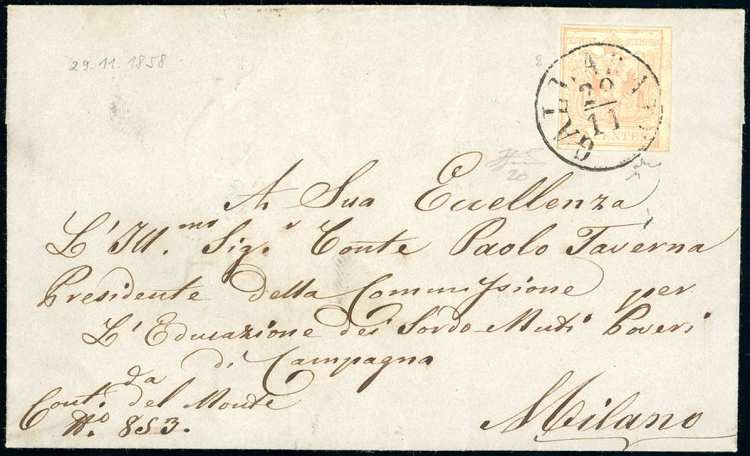 29.11.1858
GALLARATE
29
11
CENTES
20
A Sua Eccellenza
L'Ill.mo Sig.r Conte Paolo Taverna
Presidente della Commissione per
L'Educazione dei Sordo-Muti Poveri
di Campagna
da
Cont.a del Monte
No. 853.
Milano